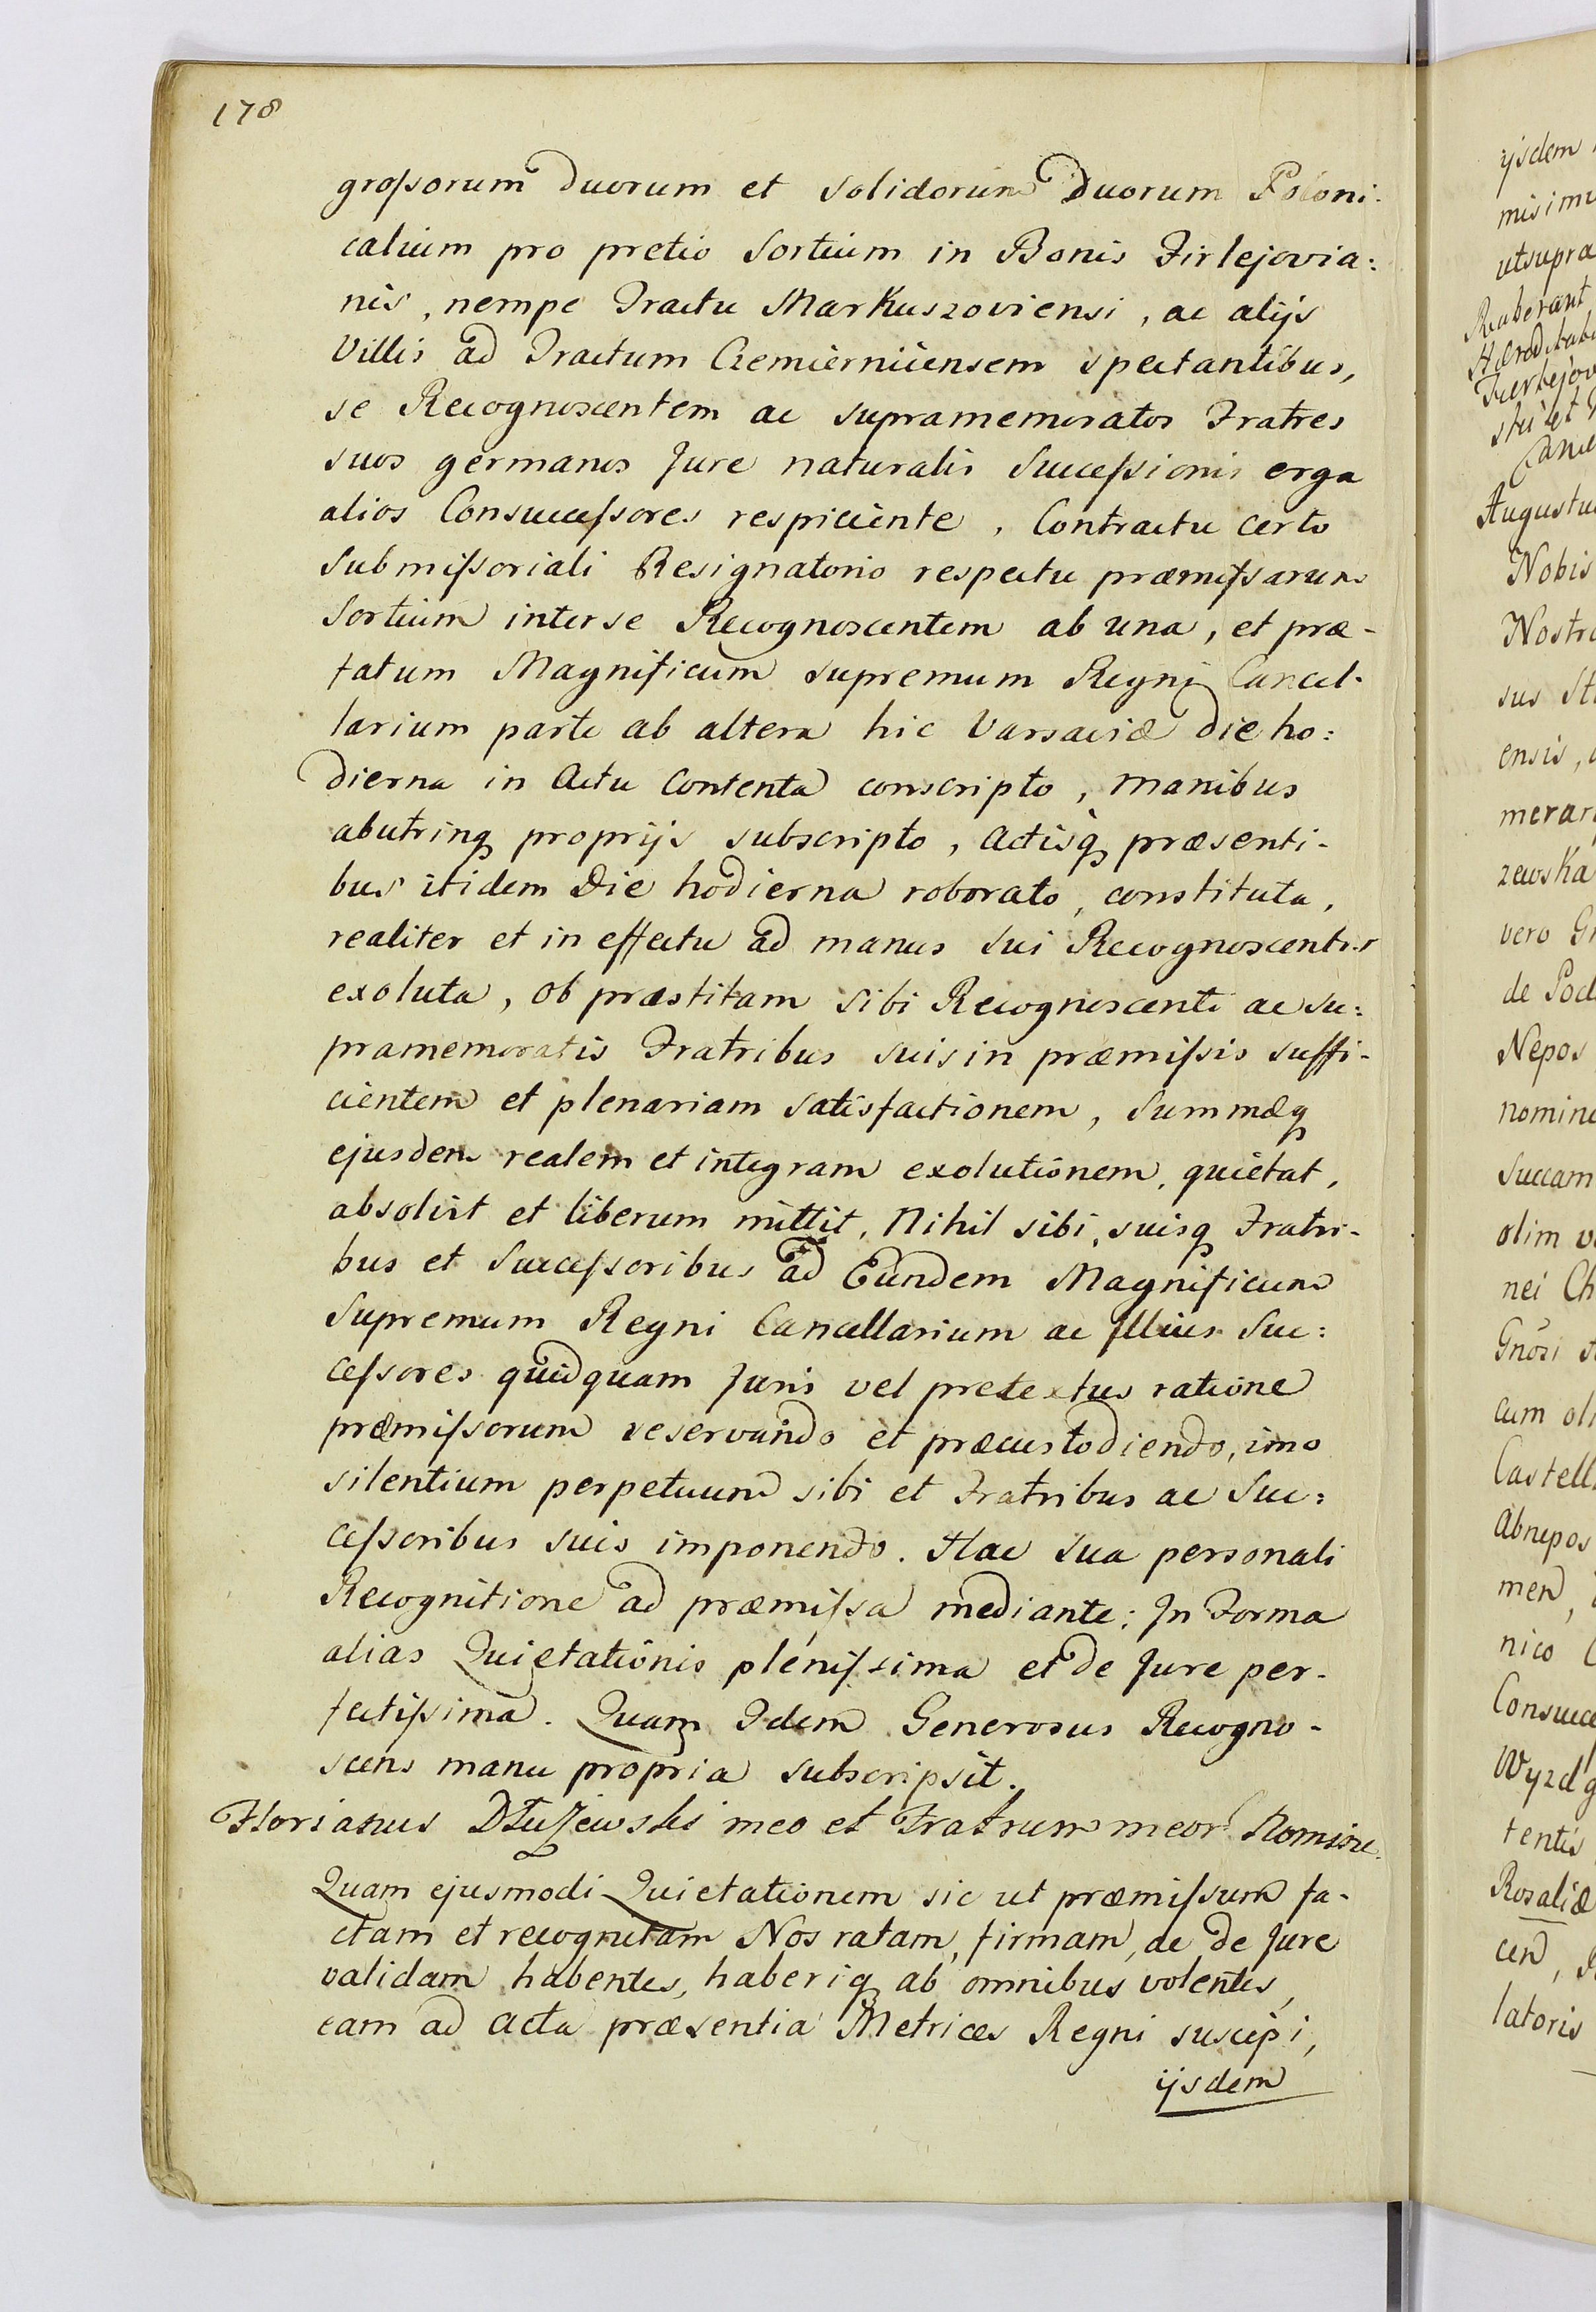 178
grossorum duorum et solidorum duorum Poloni-
calium pro pretio Sortium in Bonis Firlejovia:
nis, nempe Tractu Markuszoviensi, ac alijs
Villis ad Tractum Czemiernicensem spectantibus,
se Recognoscentem ac supramemoratos Fratres
suos germanos Jure naturalis Successionis erga
alios Consuccessores respiciente, Contractu certo
Submissoriali Resignatorio respectu præmissarum
Sortium inter se Recognoscentem ab una, et præ-
fatum Magnificum supremum Regni Cancel-
larium parte ab altera hic Varsaviæ die ho:
dierna in Actu Contenta conscripto, manibus
abutrinq proprijs subscripto, Actisq præsenti-
bus itidem Die hodierna roborato, constituta,
realiter et in effectu ad manus sui Recognoscentis
exoluta, ob præstitam sibi Recognoscenti ac su:
pramemoratis Fratribus suis in præmissis suffi-
cientem et plenariam satisfactionem, Summæq
ejusdem realem et integram exolutionem, quietat,
absolvit et liberum mittit, Nihil sibi, suisq Fratri-
bus et Successoribus ad Eundem Magnificum
Supremum Regni Cancellarium ac Illius Suc:
cessores quidquam Juris vel pretextus ratione
præmissorum reservando et præcustodiendo, imo
silentium perpetuum sibi et Fratribus ac Suc:
cessoribus suis imponendo. Hac sua personali
Recognitione ad præmissa mediante: In Forma
alias Quietationis plenissima et de Jure per-
fectissima. Quam Idem Generosus Recogno-
scens manu propria subscripsit.
Florianus Dłużewski meo et Fratrum meor Nomine.
Quam ejusmodi Quietationem sic ut præmissum fa-
ctam et recognitam Nos ratam, firmam, ac de Jure
validam habentes, haberiq ab omnibus volentes,
eam ad Acta præsentia Metrices Regni suscipi,
ijsdem
ijsdem
utsupra
Augustu
Nobis
Nostr
sus St
ensis,
merar
zewska
vero G
de Pod
Nepos
nomin
Succam
olim v
nei Ch
Gnosi
cum oli
Castell
Abnepos
men,
nico
Consucce
Wyzdg
tentis
Rosaliæ
cen,
latoris